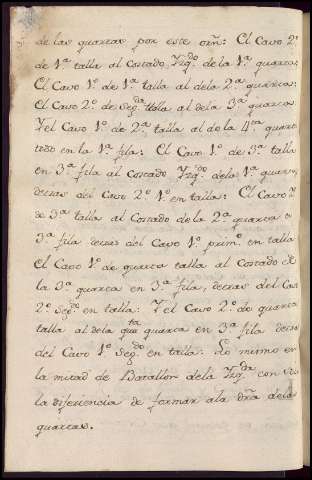 de las quartas por este orñ: El Cavo 2º
de 1ª talla al Costado Yzqdº de la 1ª quarta:
El Cavo 1º de 1ª talla al dela 2ª quarta:
El Cavo 2º de Segda talla al dela 3ª quarta
Y el Cavo 1º de 2ª talla al de la 4ta quarta
todo en la 1ª fila: El Cavo 1º de 3ª talla
en 3ª fila al Costado Yzqdº dela 1ª quarta,
detras del Cavo 2º 1º en talla: El Cavo 2º
de 3ª talla al Costado de la 2ª quarta en
3ª fila detras del Cavo 1º primº en talla
el Cavo 1º de quarta talla al Costado de
la 3ª quarta en 3ª fila, detras del Cavo
2º Segdº en talla: Y el Cavo 2º de quarta
talla al dela qta quarta en 3ª fila detras
del Cavo 1º Segdº en talla. Lo mismo en
la mitad de Batallon dela Yzqda con
la diferiencia de formar ala dra delas
quartas.